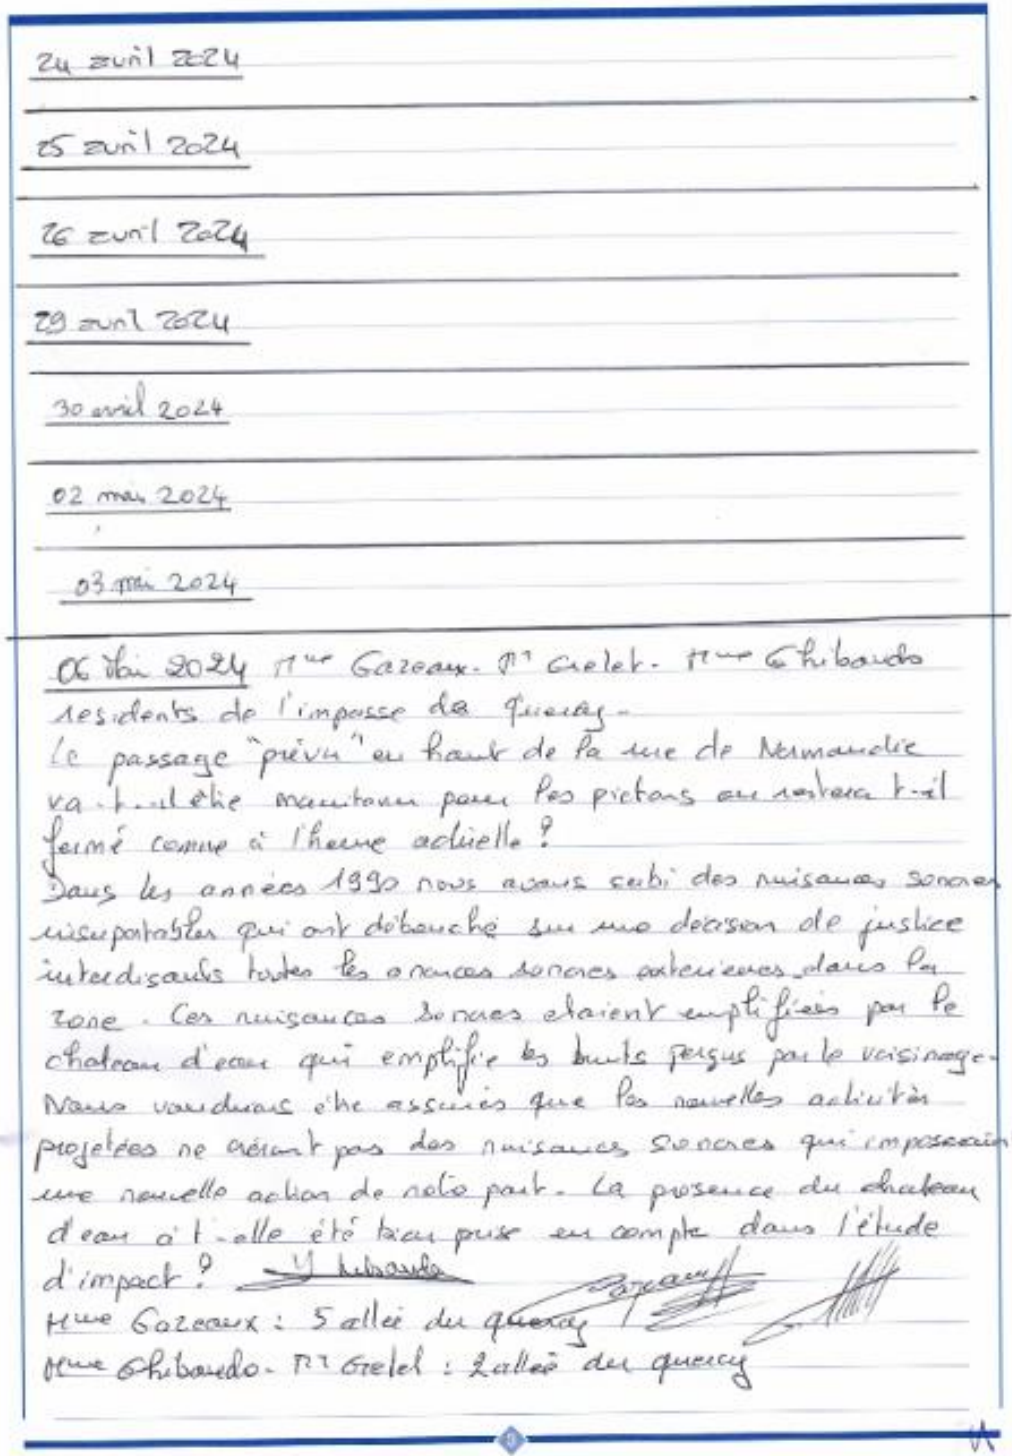 24 avril 2024
25 avril 2024
26 avril 2024
29 avril 2024
30 avril 2024
02 mai 2024
03 mai 2024
06 Mai 2024 Mme Gazeaux. Mr Grelet. Mme Ghibaudo
residents de l'impasse du Quercy.
Le passage "prévu" en haut de la rue de Normandie
va-t-il être maintenu pour les pietons ou restera t-il
fermé comme à l'heure actuelle ?
Dans les années 1990 nous avons subi des nuisances sonores
insuportables qui ont débouché sur une décision de justice
interdisants toutes les sonores exterieures dans la
zone. Ces nuisances sonores etaient emplifiées par le
chateau d'eau qui emplifie les bruits perçus par le voisinage.
Nous voudrions être assurés que les nouvelles activités
projetées ne créront pas des nuisances sonores qui imposerain
une nouvelle action de notre part. La presence du chateau
d'eau a t-elle été bien prise en compte dans l'étude
d'impact ? Ghibaudo Gazeaux
Mme Gazeaux : 5 allée du quercy
Mme Ghibaudo - Mr Grelet : 2 allée du quercy
9